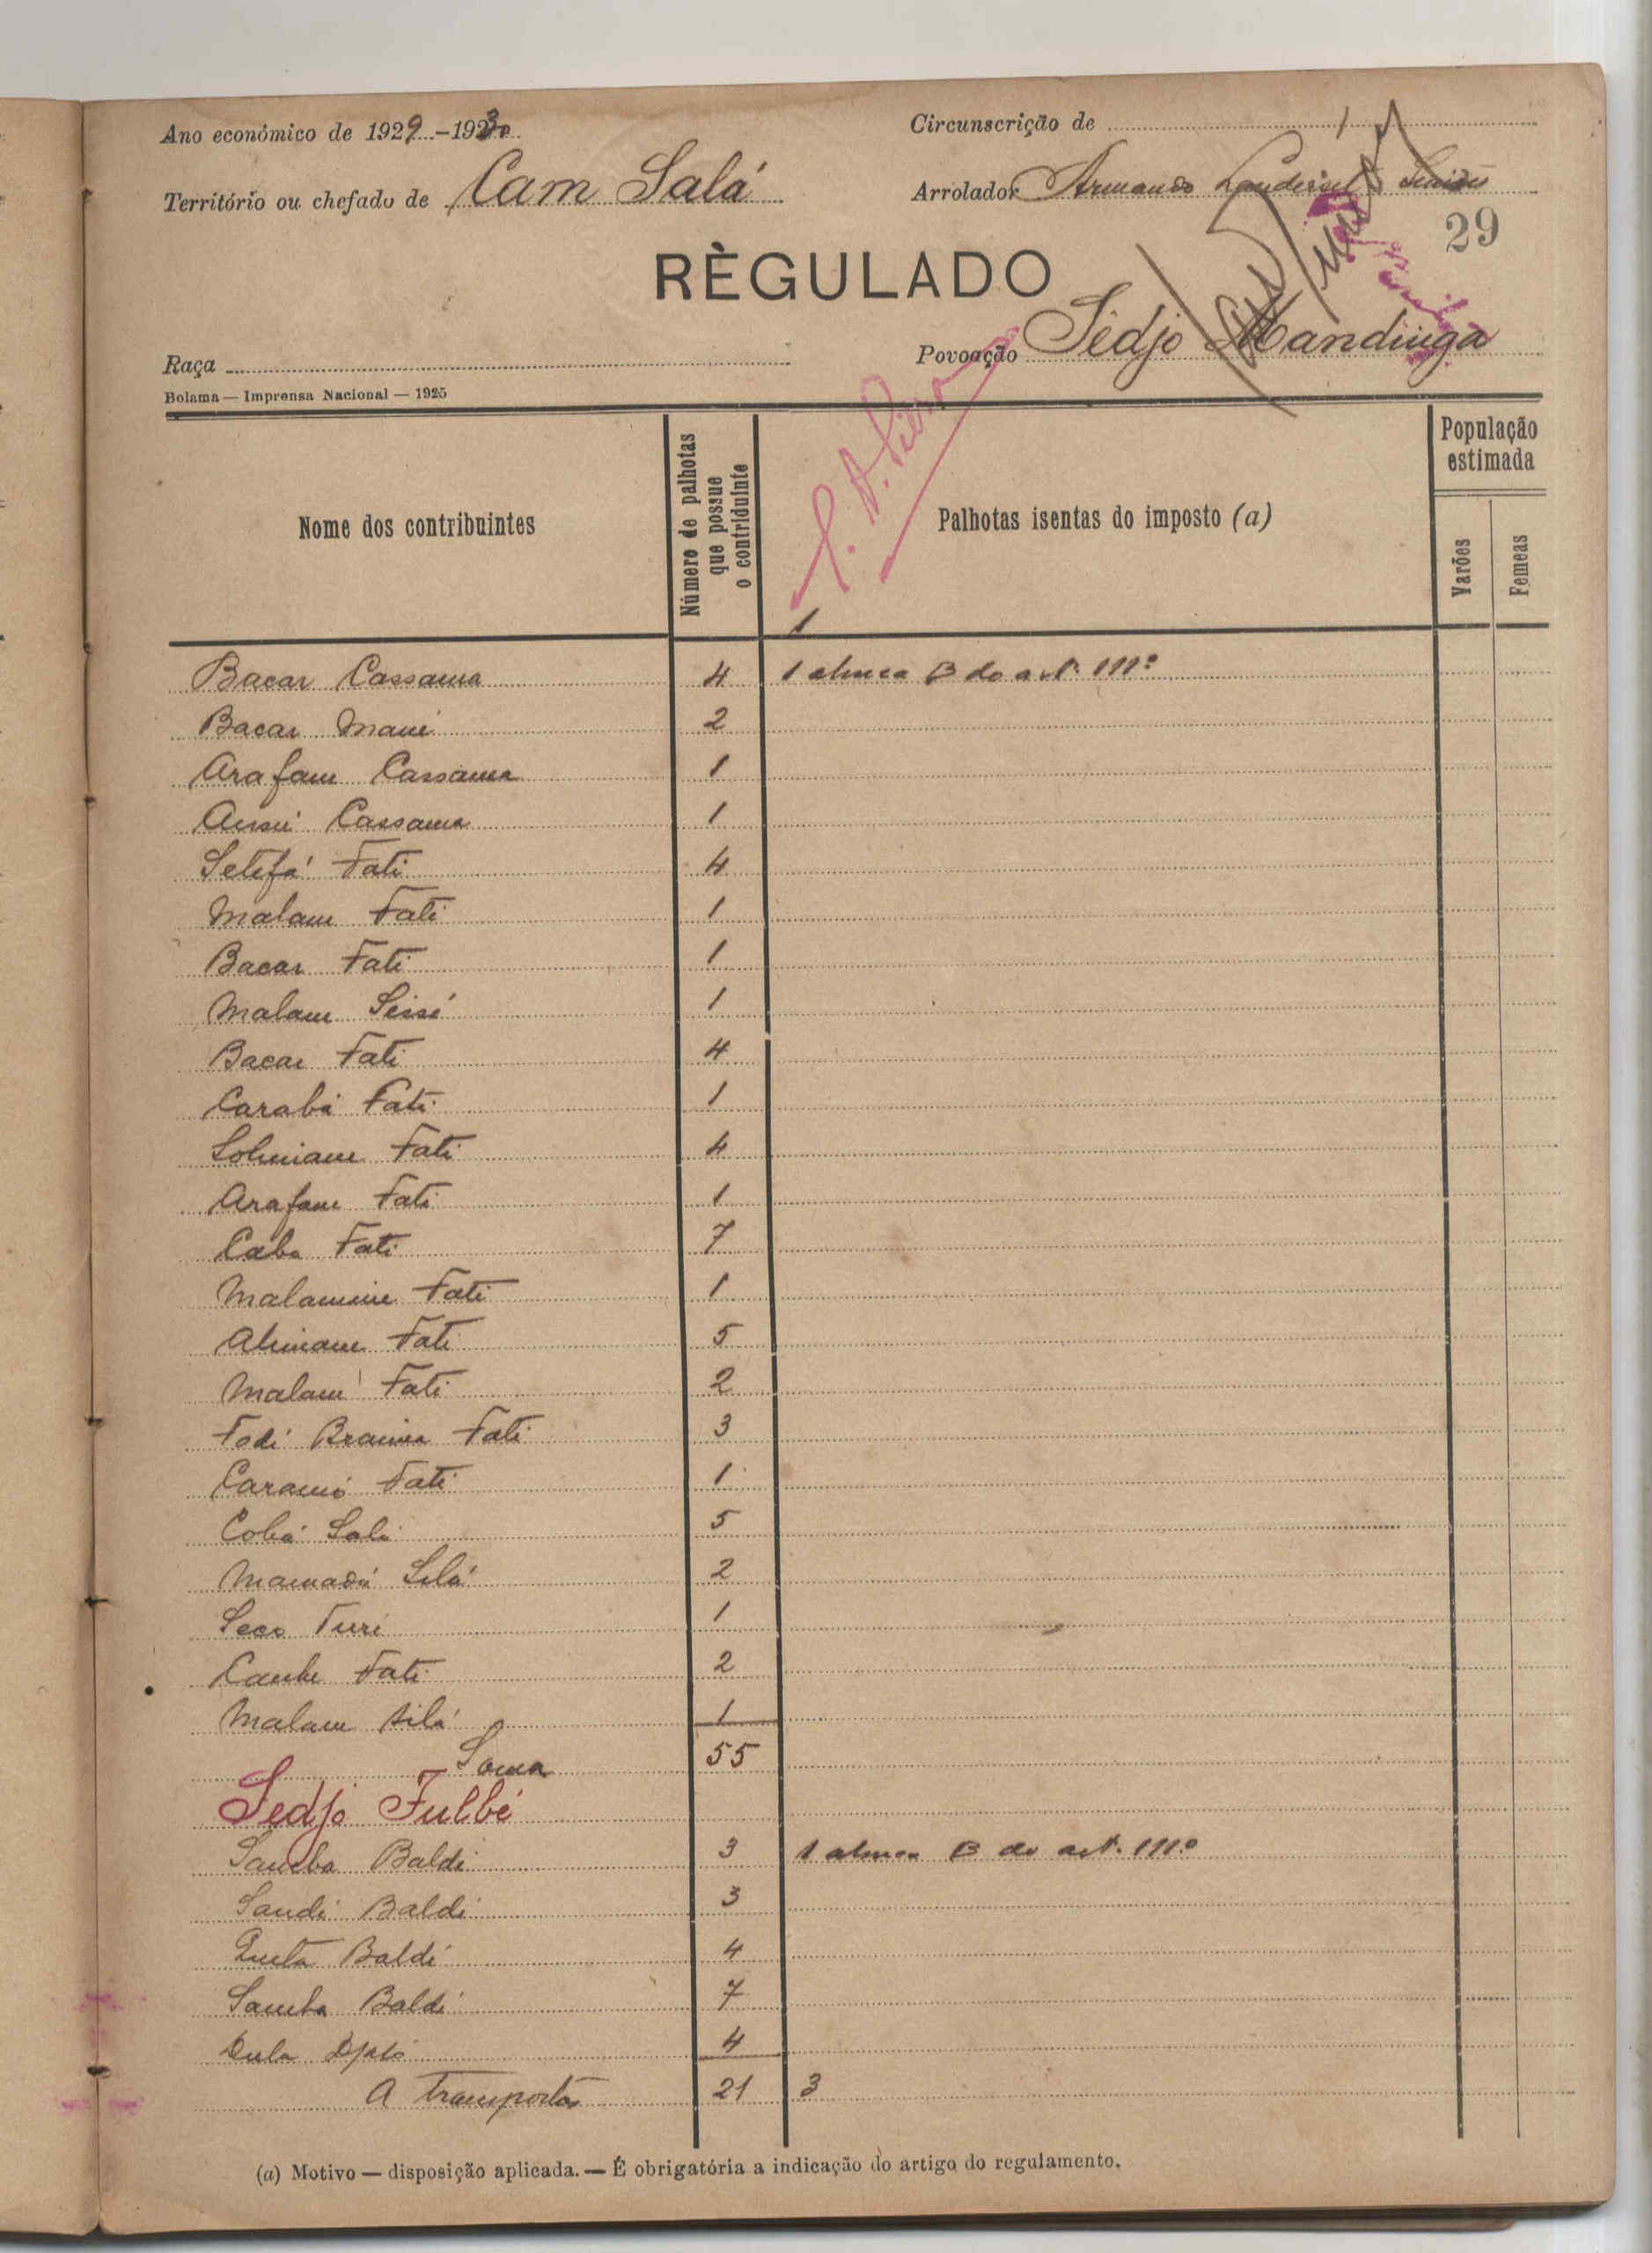 Ano económico de 1929-1930
Circunscrição de
Território ou chefado de Cam Salá
Arrolador Armando
29
RÈGULADO
Raça
Povoação Sedjo Mandinga
Bolama — Imprensa Nacional — 1925
Nome dos contribuintes
Número de palhotas que possue o contriduinte
Palhotas isentas do imposto (a)
População estimada
Varões
Femeas
1
Bacar Cassama 4 1 alinea B do art. 111º
Bacar Mané 2
Arafam Cassama 1
Ansú Cassama 1
Setefá Fati 4
Malam Fati 1
Bacar Fati 1
Malam Seissé 1
Bacar Fati 4
Carabá Fati 1
Solimane Fati 4
Arafam Fati 1
Caba Fati 7
Malamine Fati 1
Alimame Fati 5
Malam Fati 2
Fodé Braima Fati 3
Caramó Fati 1
Cobá 5
Mamadú Silá 2
Seco Turé 1
Fati 2
Malam Silá 1
Soma 55
Sedjo Fulbé
Samba Baldé 3 1 alinea B do art. 111º
Sandé Baldé 3
Quetá Baldé 4
Samba Baldé 7
Dula Djaló 4
A transportar 21 3
(a) Motivo — disposição aplicada. — É obrigatória a indicação do artigo do regulamento.